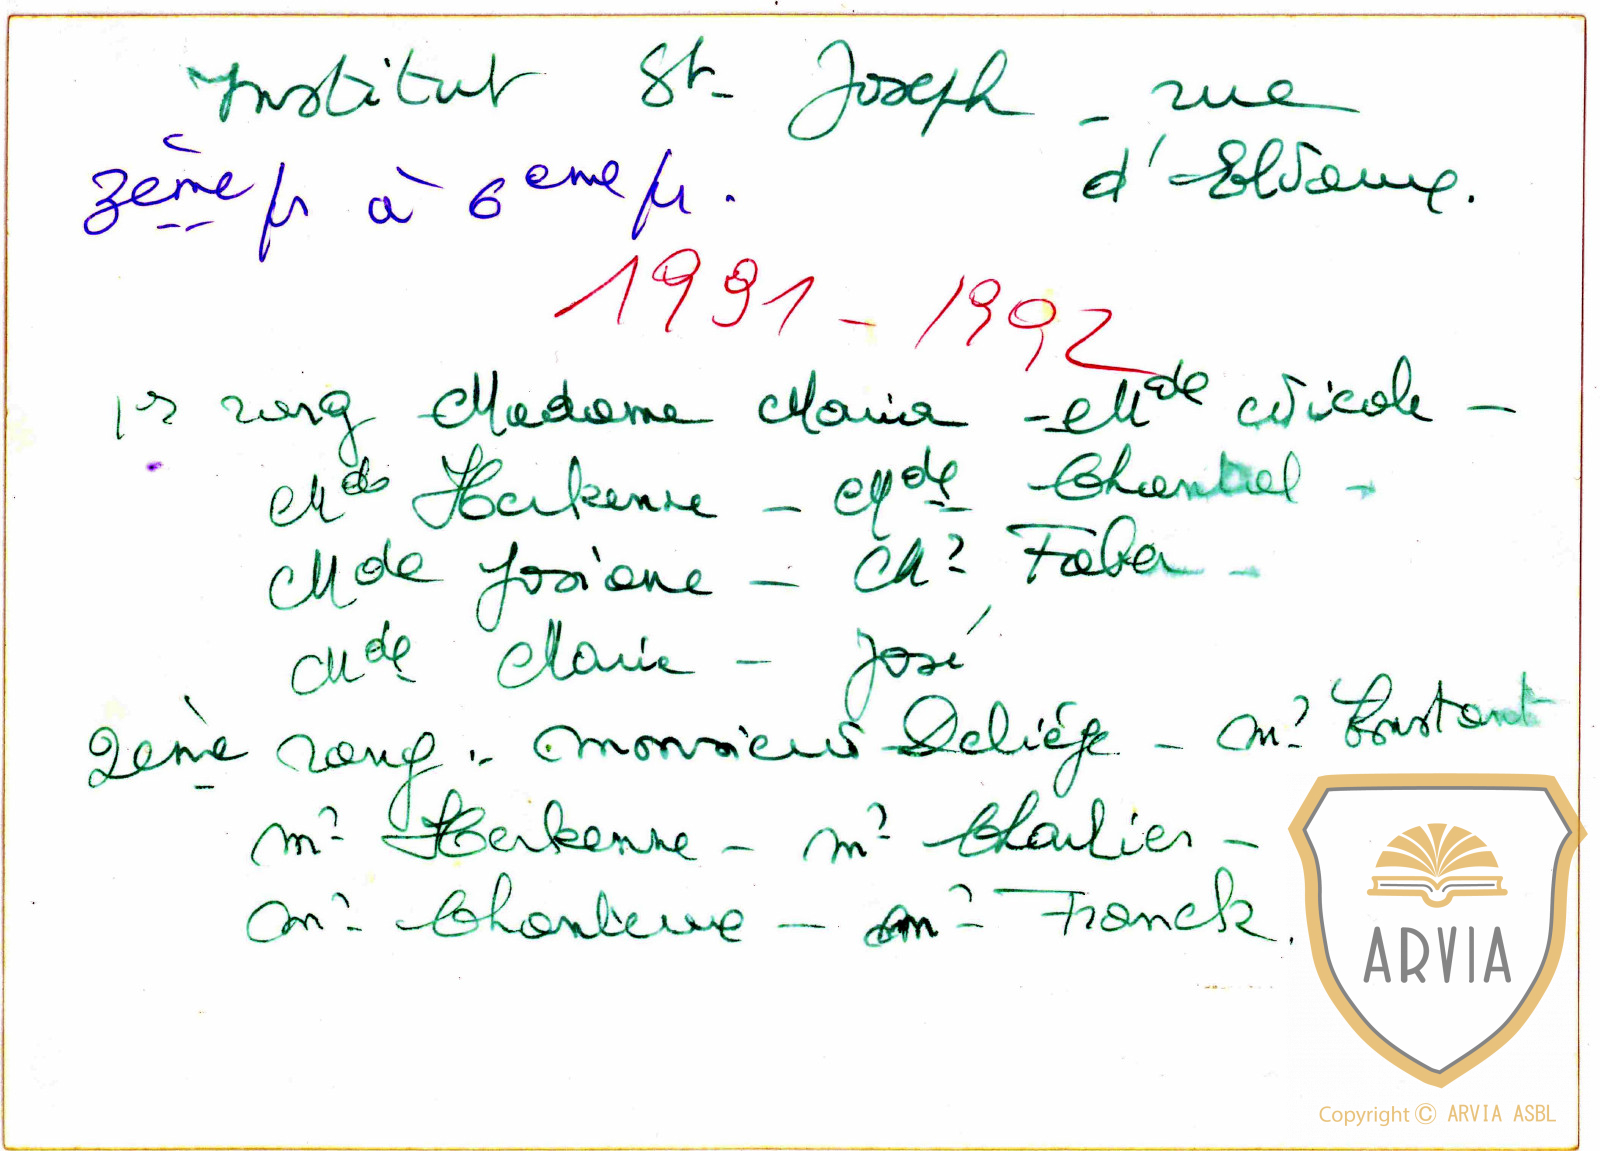 Institut St Joseph - rue
d'Elvaux.
3ème pr à 6ème pr.
1991 - 1992
1er rang Madame Maria - Mde Nicole -
Mde Herkenne - Mde Chantal -
Mde Josiane - Mr Faber -
Mde Marie - José
2ème rang .. monsieur Deliége - Mr Constant
Mr Herkenne - Mr Charlier -
Mr - Mr Franck.
ARVIA
Copyright © ARVIA ASBL